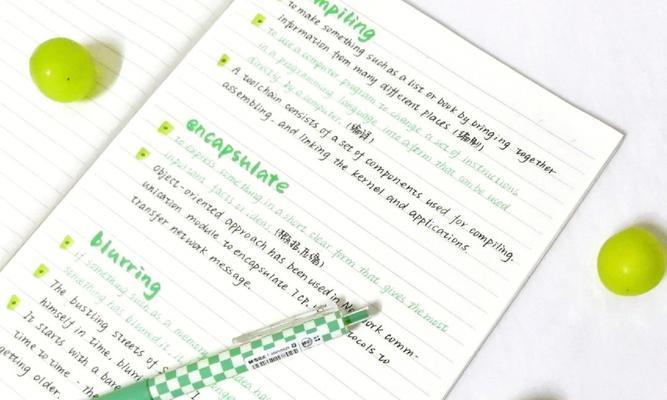 mpiling
to make something such as a list or book by bringing together
information from many different places (编制)
to use a computer program to change a set of instructions
in a programming language into a form that can be used
directly by a computer. (编译)
A toolchain consists of a set of components used for compiling.
assembling. and linking the kernel and applications.
encapsulate
to express something in a short clear form that gives the most
important facts or ideas
Object-oriented approach has been used in Network comm-
unication module to encapsulate TCP. tocols to
transfer network message.
blurring
if something such as a memor
something has blurred is, it idea has
The bustling streets of S
himself in time. blurr
It starts with a bare
time to time - the
getting older.